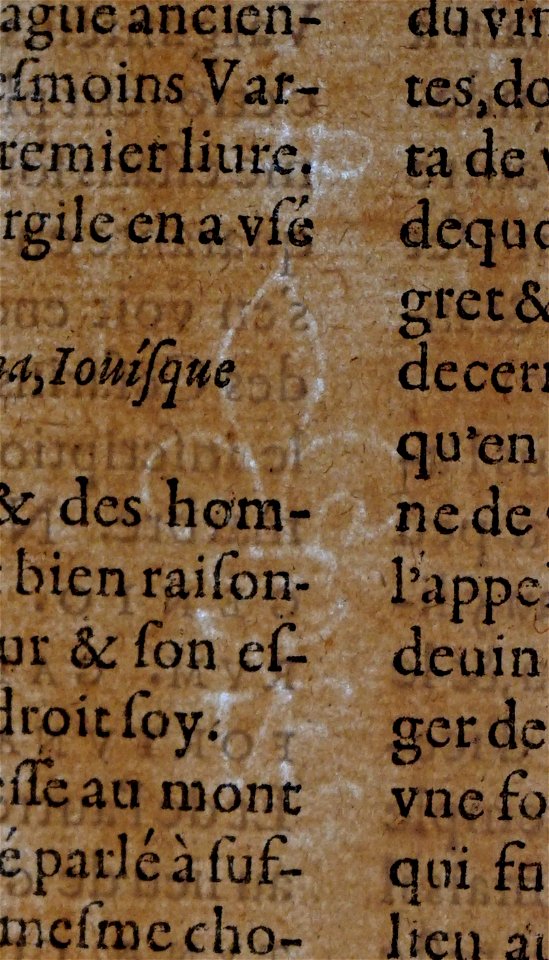 ague ancien-
eſmoins Var-
remier liure.
rgile en a vſé
na,Iouíſque
& des hom-
bien raiſon-
ur & ſon eſ-
droit ſoy.
eſſe au mont
é parlé à ſuf-
meſme cho-
du vin
tes,do
ta de v
dequo
gret &
decern
qu'en
ne de
l'appel
deuin
ger de
vne fo
qui fu
lieu au